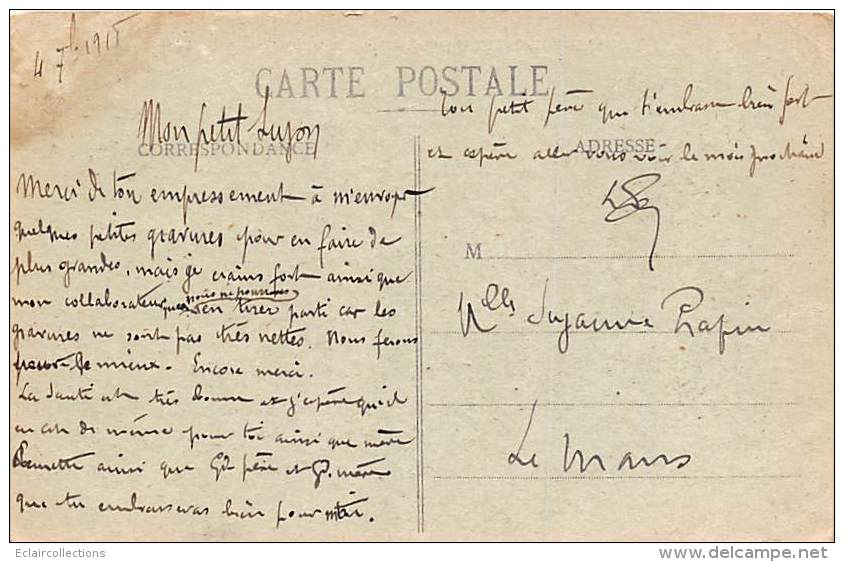 4 7b 1915
CARTE POSTALE
Mon petit Suzon
CORRESPONDANCE
Merci de ton empressement à m'envoyer
quelques petites gravures pour en faire de
plus grandes, mais je crains fort ainsi que
mon collaborateur que nous ne pourrons
en tirer parti car les
gravures ne sont pas très nettes. Nous ferons
de mieux. Encore merci.
La santé est très bonne et j'espère qu'il
en est de même pour toi ainsi que mère
ainsi que Gd père et Gd mère
que tu embrasseras bien pour moi.
Ton petit père qui t'embrasse bien fort
ADRESSE
et espère aller vous voir le mois prochain
M
Melle Suzanne
Le Mans
Eclaircollections
www.delcampe.net